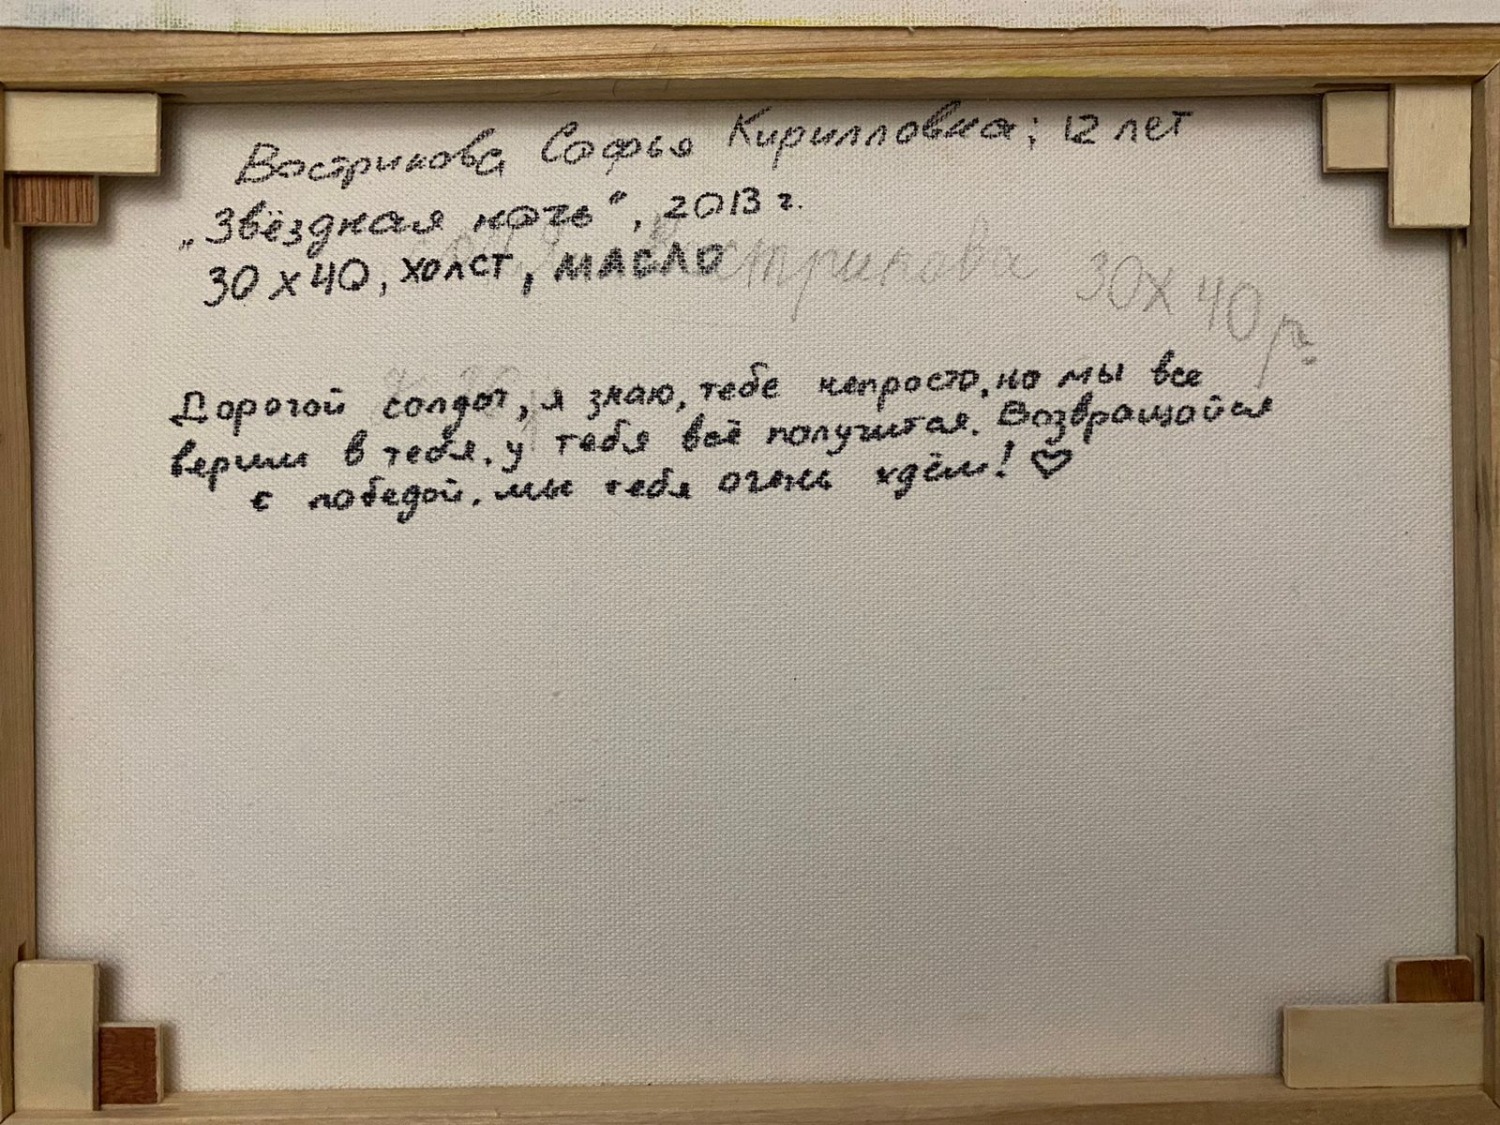 Вострикова Софья Кирилловна; 12 лет
„Звёздная ночь“, 2013 г.
30 х 40, холст, МАСЛО
Вострикова 30Х40 г.
Дорогой солдат, я знаю, тебе непросто, но мы все
верим в тебя. у тебя всё получится. Возвращайся
с победой. мы тебя очень ждём! ♡